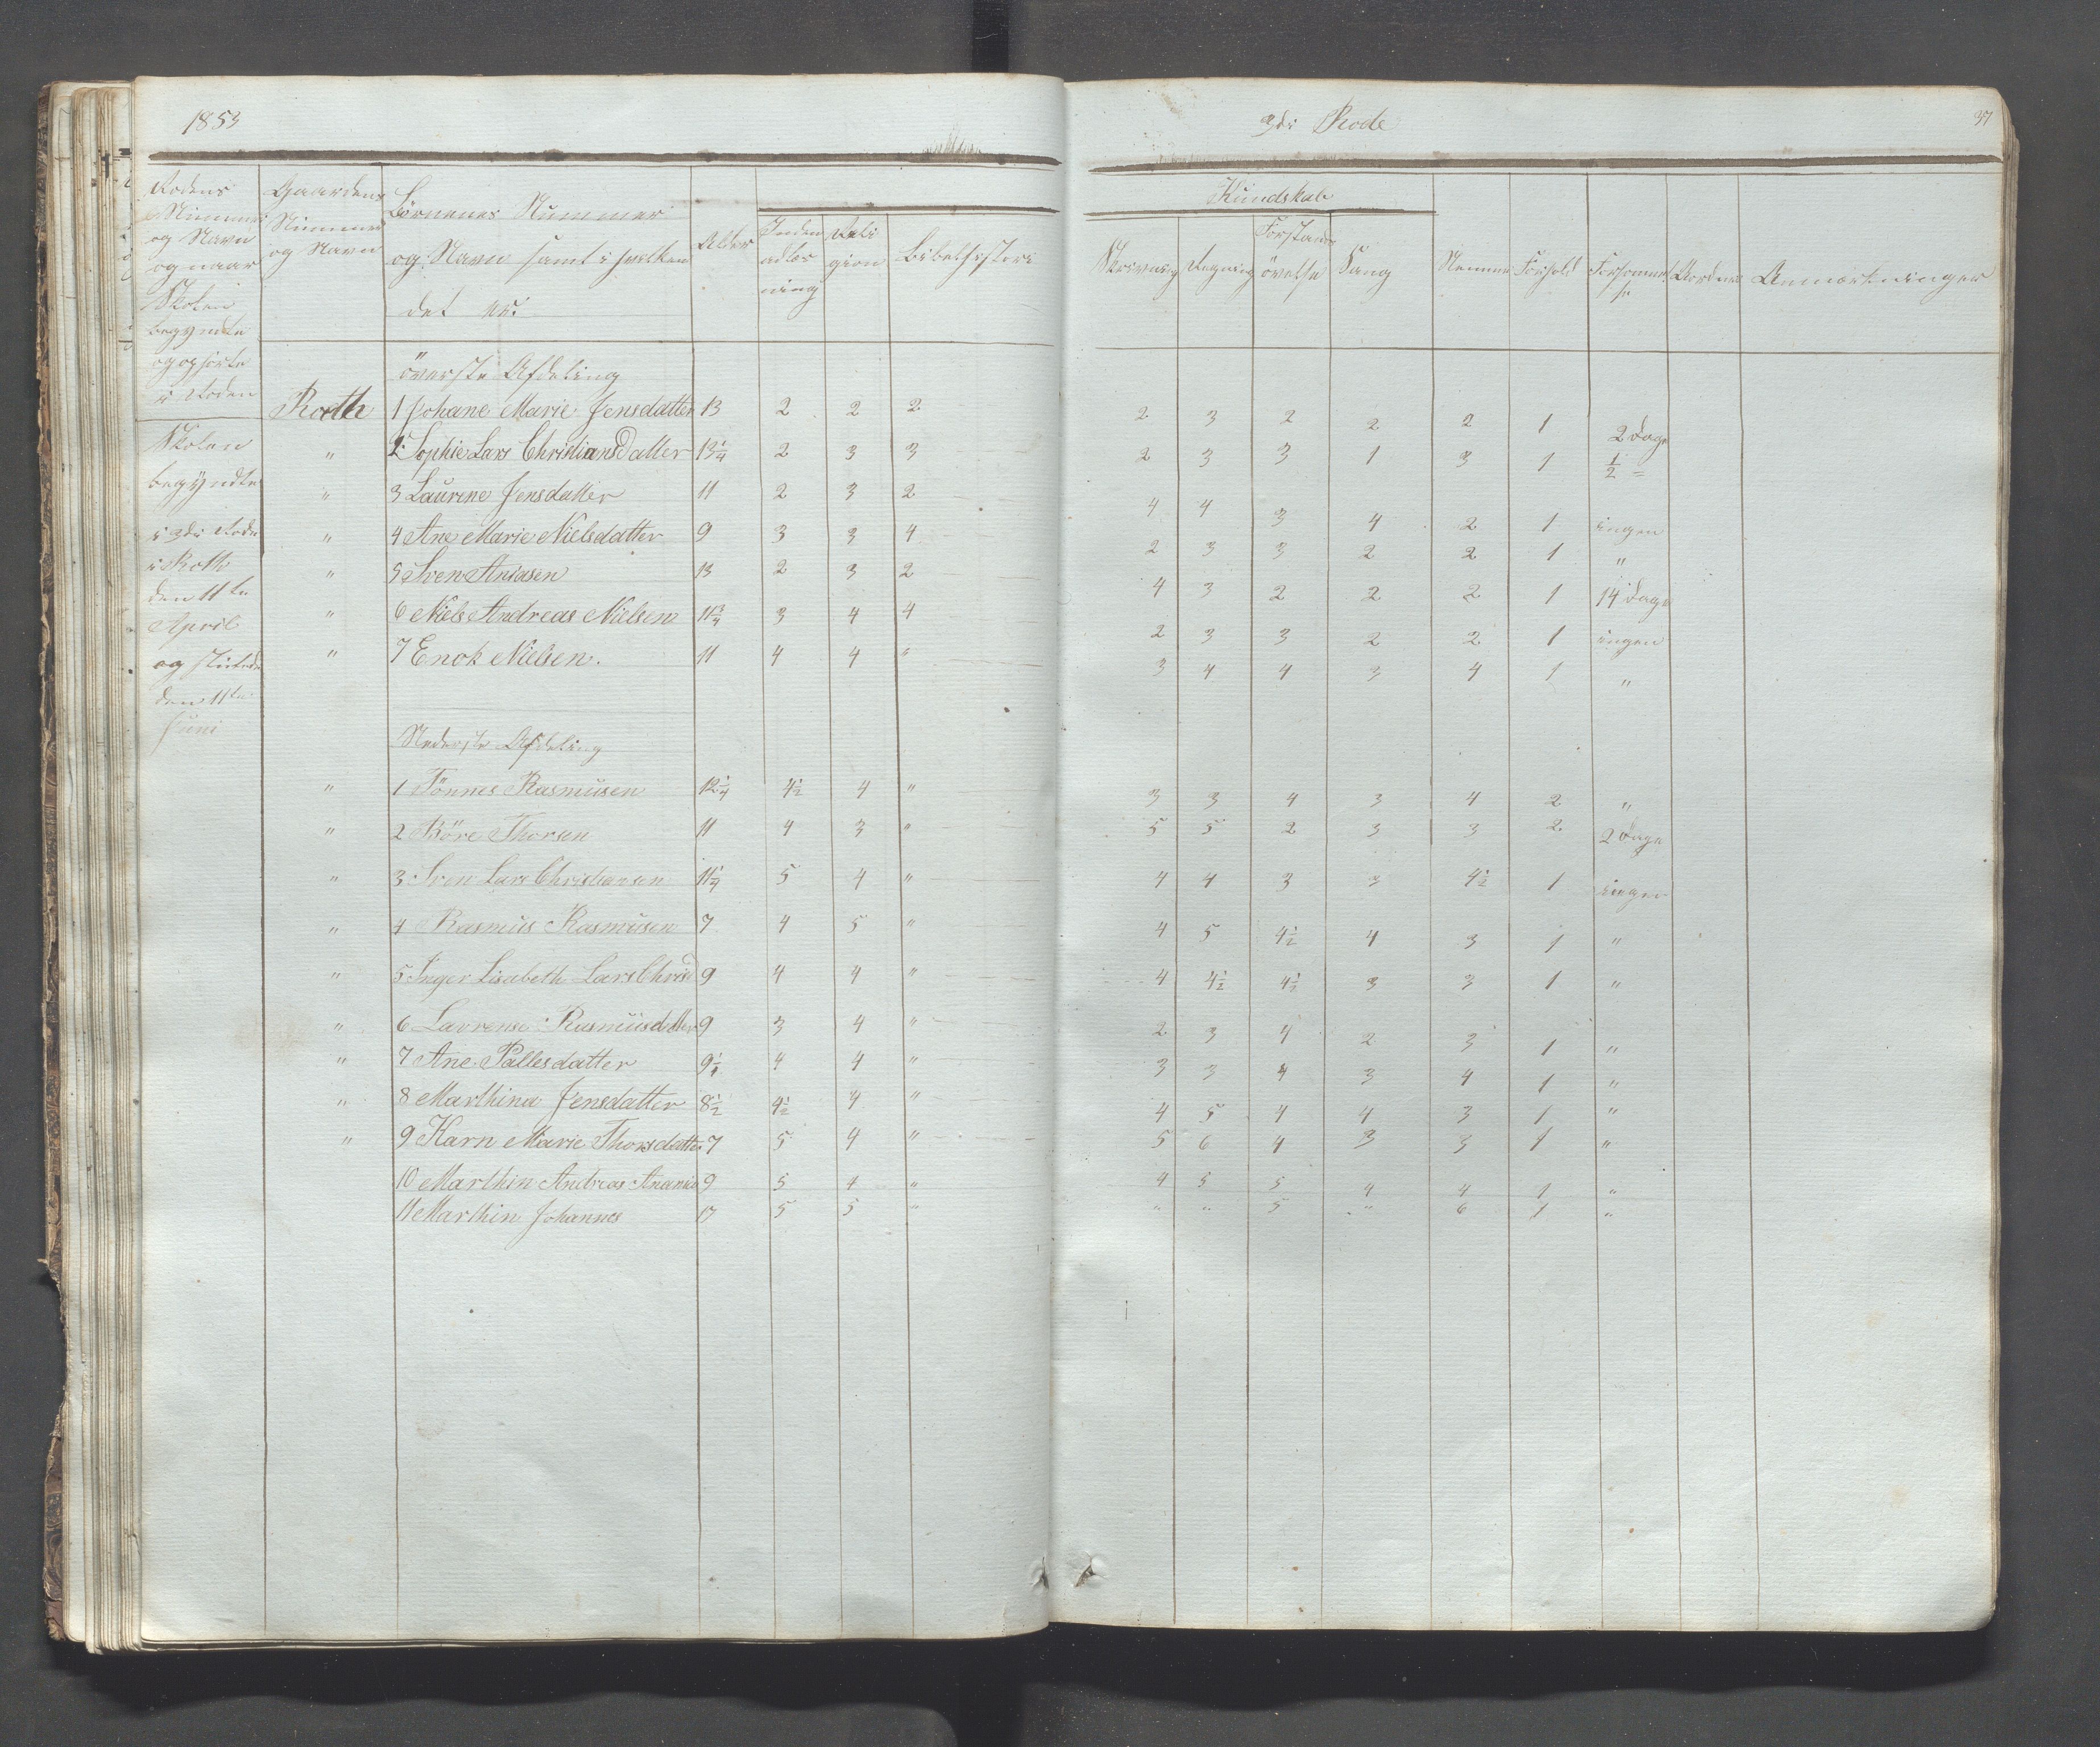 1853
3die Rode
37
Rodens Nummer og Navn og naar Skolen begyndte og ophørte i Roden
Gaardens Nummer og Navn
Börnenes Nummer og Navn samt i hvilken det er
Alder
Inden adlæsning
Religion
Bibelhistori
Kundskab
Skrivning
Regning
Forstands övelse
Sang
Nemme
Forhold
Forsømmelse
Anmærkninger
Skolen begyndte i 3die Rode i Roth den 11te April og sluttede den 11te Juni
överste Afdeling
Roth 1 Johane Marie Jensdatter 13 2 2 2 2 3 2 2 2 1 2 Dage
" 2 Sophie Lars Christiansdatter 13 1/4 2 3 3 2 3 3 1 3 1 1/2 =
" 3 Laurine Jensdatter 11 2 3 2 4 4 3 4 2 1 ingen
" 4 Ane Marie Nielsdatter 9 3 3 4 2 3 3 2 2 1 "
" 5 Sven Aniasen 13 2 3 2 4 3 2 2 2 1 14 Dage
" 6 Niels Andreas Nielsen 11 3/4 3 4 4 2 3 3 2 2 1 ingen
" 7 Enok Nielsen. 11 4 4 " 3 4 4 3 4 1 "
Nederste Afdeling
" 1 Tönnes Rasmüsen 12 1/4 4 1/2 4 " 3 3 4 3 4 2 "
" 2 Böre Thorsen 11 4 3 " 5 5 2 3 3 2 2 Dage
" 3 Sven Lars Christiansen 11 1/4 5 4 " 4 4 3 3 4 1/2 1 ingen
" 4 Rasmus Rasmüsen 7 4 5 " 4 5 4 1/2 4 3 1 "
" 5 Inger Lisabeth Lars Chrisd 9 4 4 " 4 4 1/2 4 1/2 3 3 1 "
" 6 Lavrense Rasmüsdatter 9 3 4 " 2 3 4 2 3 1 "
" 7 Ane Pallesdatter 9 4 4 " 3 3 4 3 4 1 "
" 8 Marthina Jensdatter 8 1/2 4 1/2 4 " 4 5 4 4 3 1 "
" 9 Karn Marie Thorsdatter 7 5 4 " 5 6 4 3 3 1 "
10 Marthin Andreas 9 5 4 " 4 5 5 4 4 1 "
11 Marthin Johannes 17 5 5 " " " 5 " 6 1 "